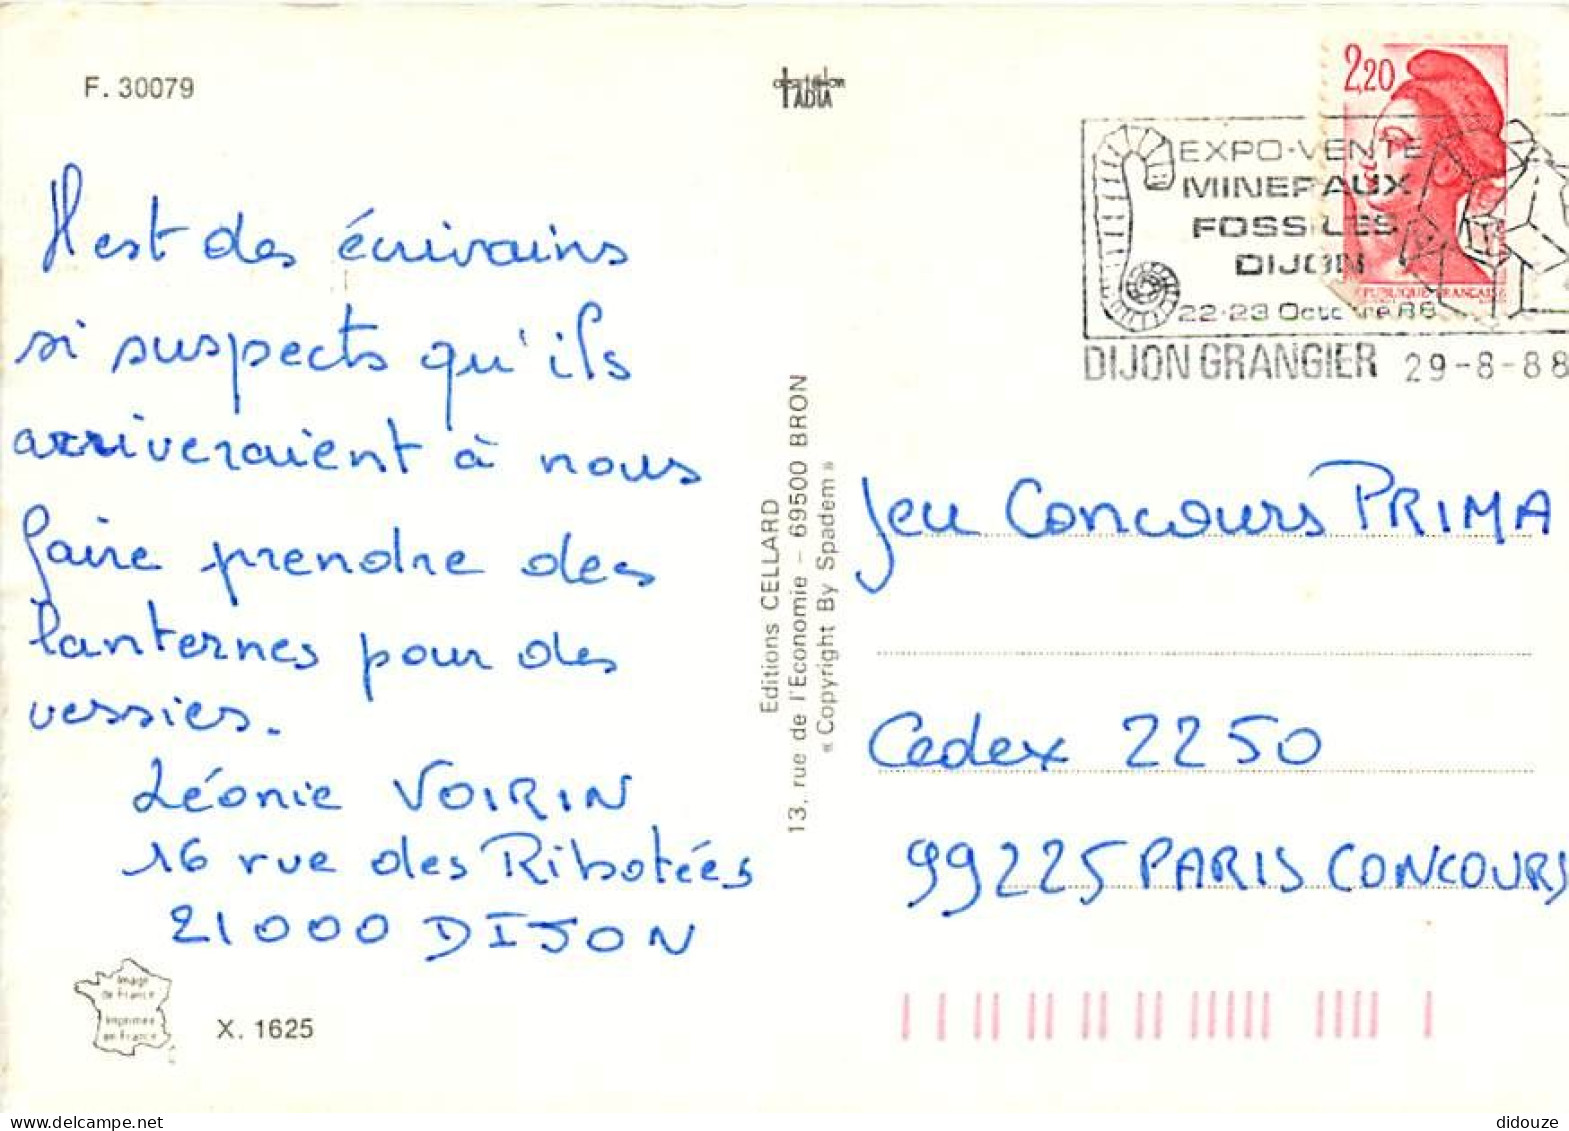 F. 30079
Il est des écrivains
si suspects qu'ils
arriveraient à nous
faire prendre des
lanternes pour des
vessies.
Léonie VOIRIN
16 rue des Ribotées
21000 DIJON
Image
de France
Imprimée
en France
X. 1625
Editions CELLARD
13, rue de l'Economie - 69500 BRON
« Copyright By Spadem »
2,20
EXPO-VENTE
MINERAUX
FOSSILES
DIJON
22-23 Octobre 88
REPUBLIQUE FRANCAISE
DIJON GRANGIER 29-8-88
Jeu Concours PRIMA
Cedex 2250
99225 PARIS CONCOURS
didouze